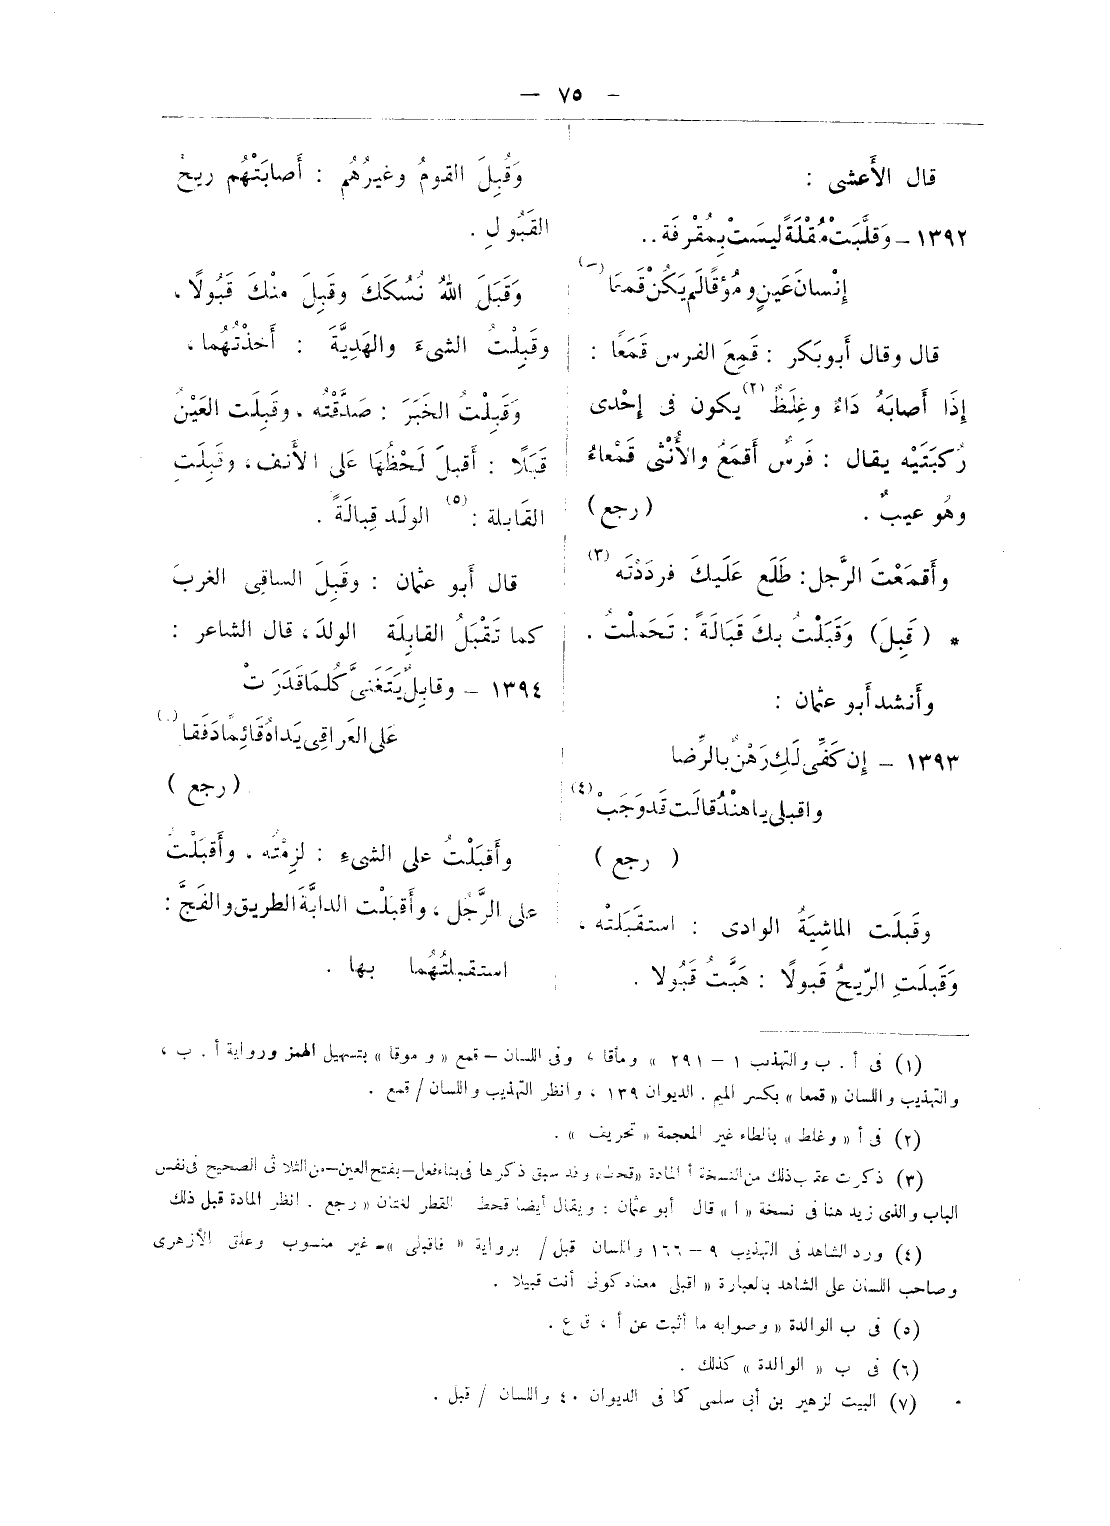 — ٧٥ —
قال الأَعشى :
١٣٩٢ – وَقلَّبَتْ مُقْلَةً ليسَتْ بِمُقْرِفَة . .
إِنْسانَ عَينٍ و مُؤقًا لَم يَكُنْ قَمعَا
قال وقال أَبوبَكر : قَمِعَ الفرس قَمَعًا :
إِذَا أَصابَهُ دَاءٌ وغِلَظٌ (٢) يكون فى إِحْدى
رُكبَتَيْه يقال : فَرسٌ أَقمَعُ والأُنْثى قَمْعاءُ
وهُو عيبٌ . ( رجع )
وأَقمَعْتَ الرَّجل : طَلَع عَلَيكَ فردَدْتَه (٣)
* ( قَبِلَ ) وَقَبَلْتُ بكَ قَبَالَةً : تَحَملْتُ .
وأَنشد أَبو عثمان :
١٣٩٣ – إِن كَفِّى لَكِ رَهْنٌ بالرِّضا
واقبلى يا هنْدُ قالَت قَد وَجَبْ (٤)
( رجع )
وقَبلَت الماشِيَةُ الوادى : استقبَلَتْه ،
وَقَبلَتِ الرّيحُ قَبولًا : هَبَّتْ قَبُولا .
وَقُبِلَ القومُ وغيرُهُم : أَصابَتْهُم ريحُ
القَبُولِ .
وَقَبَلَ اللهُ نُسُكَكَ وقَبِلَ منْكَ قَبُولًا ،
وقَبِلْتُ الشىءَ والهَدِيَّةَ : أَخذْتُهُما ،
وَقَبِلْتُ الخَبَرَ : صَدَّقْتُه ، وقَبِلَت العَيْنُ
قَبَلًا : أَقبلَ لَحْظُهَا عَلى الأَنف ، وقَبِلَتِ
القَابلة : (٥) الولَد قِبالَةً .
قال أَبو عثمان : وقَبِلَ الساقِى الغربَ
كما تَقْبَلُ القابِلَة الولدَ ، قال الشاعر :
١٣٩٤ – وقابِلٌ يَتَغَنىَّ كُلمَا قَدَرَتْ
عَلى العَراقِى يَداهُ قَائِمًا دَفَقا
( رجع )
وأَقبَلْتُ على الشىءِ : لزِمْتُه ، وأَقبَلْتُ
على الرَّجُل ، وأَقبَلْت الدابَّةَ الطريق والفَجَّ :
استقبلتُهُما بها .
(١) فى أ . ب والتهذيب ١ – ٢٩١ » ومأقا ، وفى اللسان – قمع « و موقا » بتسهيل الهمز ورواية أ . ب ،
والتهذيب واللسان « قمعا » بكسر الميم . الديوان ١٣٩ ، وانظر التهذيب واللسان / قمع .
(٢) فى أ « وغلط » بالطاء غير المعجمة « تحريف » .
(٣) ذكرت عقب ذلك من النسخة أ المادة «قحط» وقد سبق ذكرها فى بناء فعل – بفتح العين – من الثلاثى الصحيح فى نفس
الباب والذى زيد هنا فى نسخة « ا » قال أبو عثمان : ويقال أيضا قحط القطر لغتان « رجع . انظر المادة قبل ذلك
(٤) ورد الشاهد فى التهذيب ٩ – ١٦٦ واللسان قبل / برواية « فاقبلى » – غير منسوب وعلق الأزهرى
وصاحب اللسان على الشاهد بالعبارة « اقبلى معناه كونى أنت قبيلا .
(٥) فى ب الوالدة « وصوابه ما أثبت عن أ ، ق ع .
(٦) فى ب « الوالدة » كذلك .
(٧) البيت لزهير بن أبى سلمى كما فى الديوان ٤٠ واللسان / قبل .